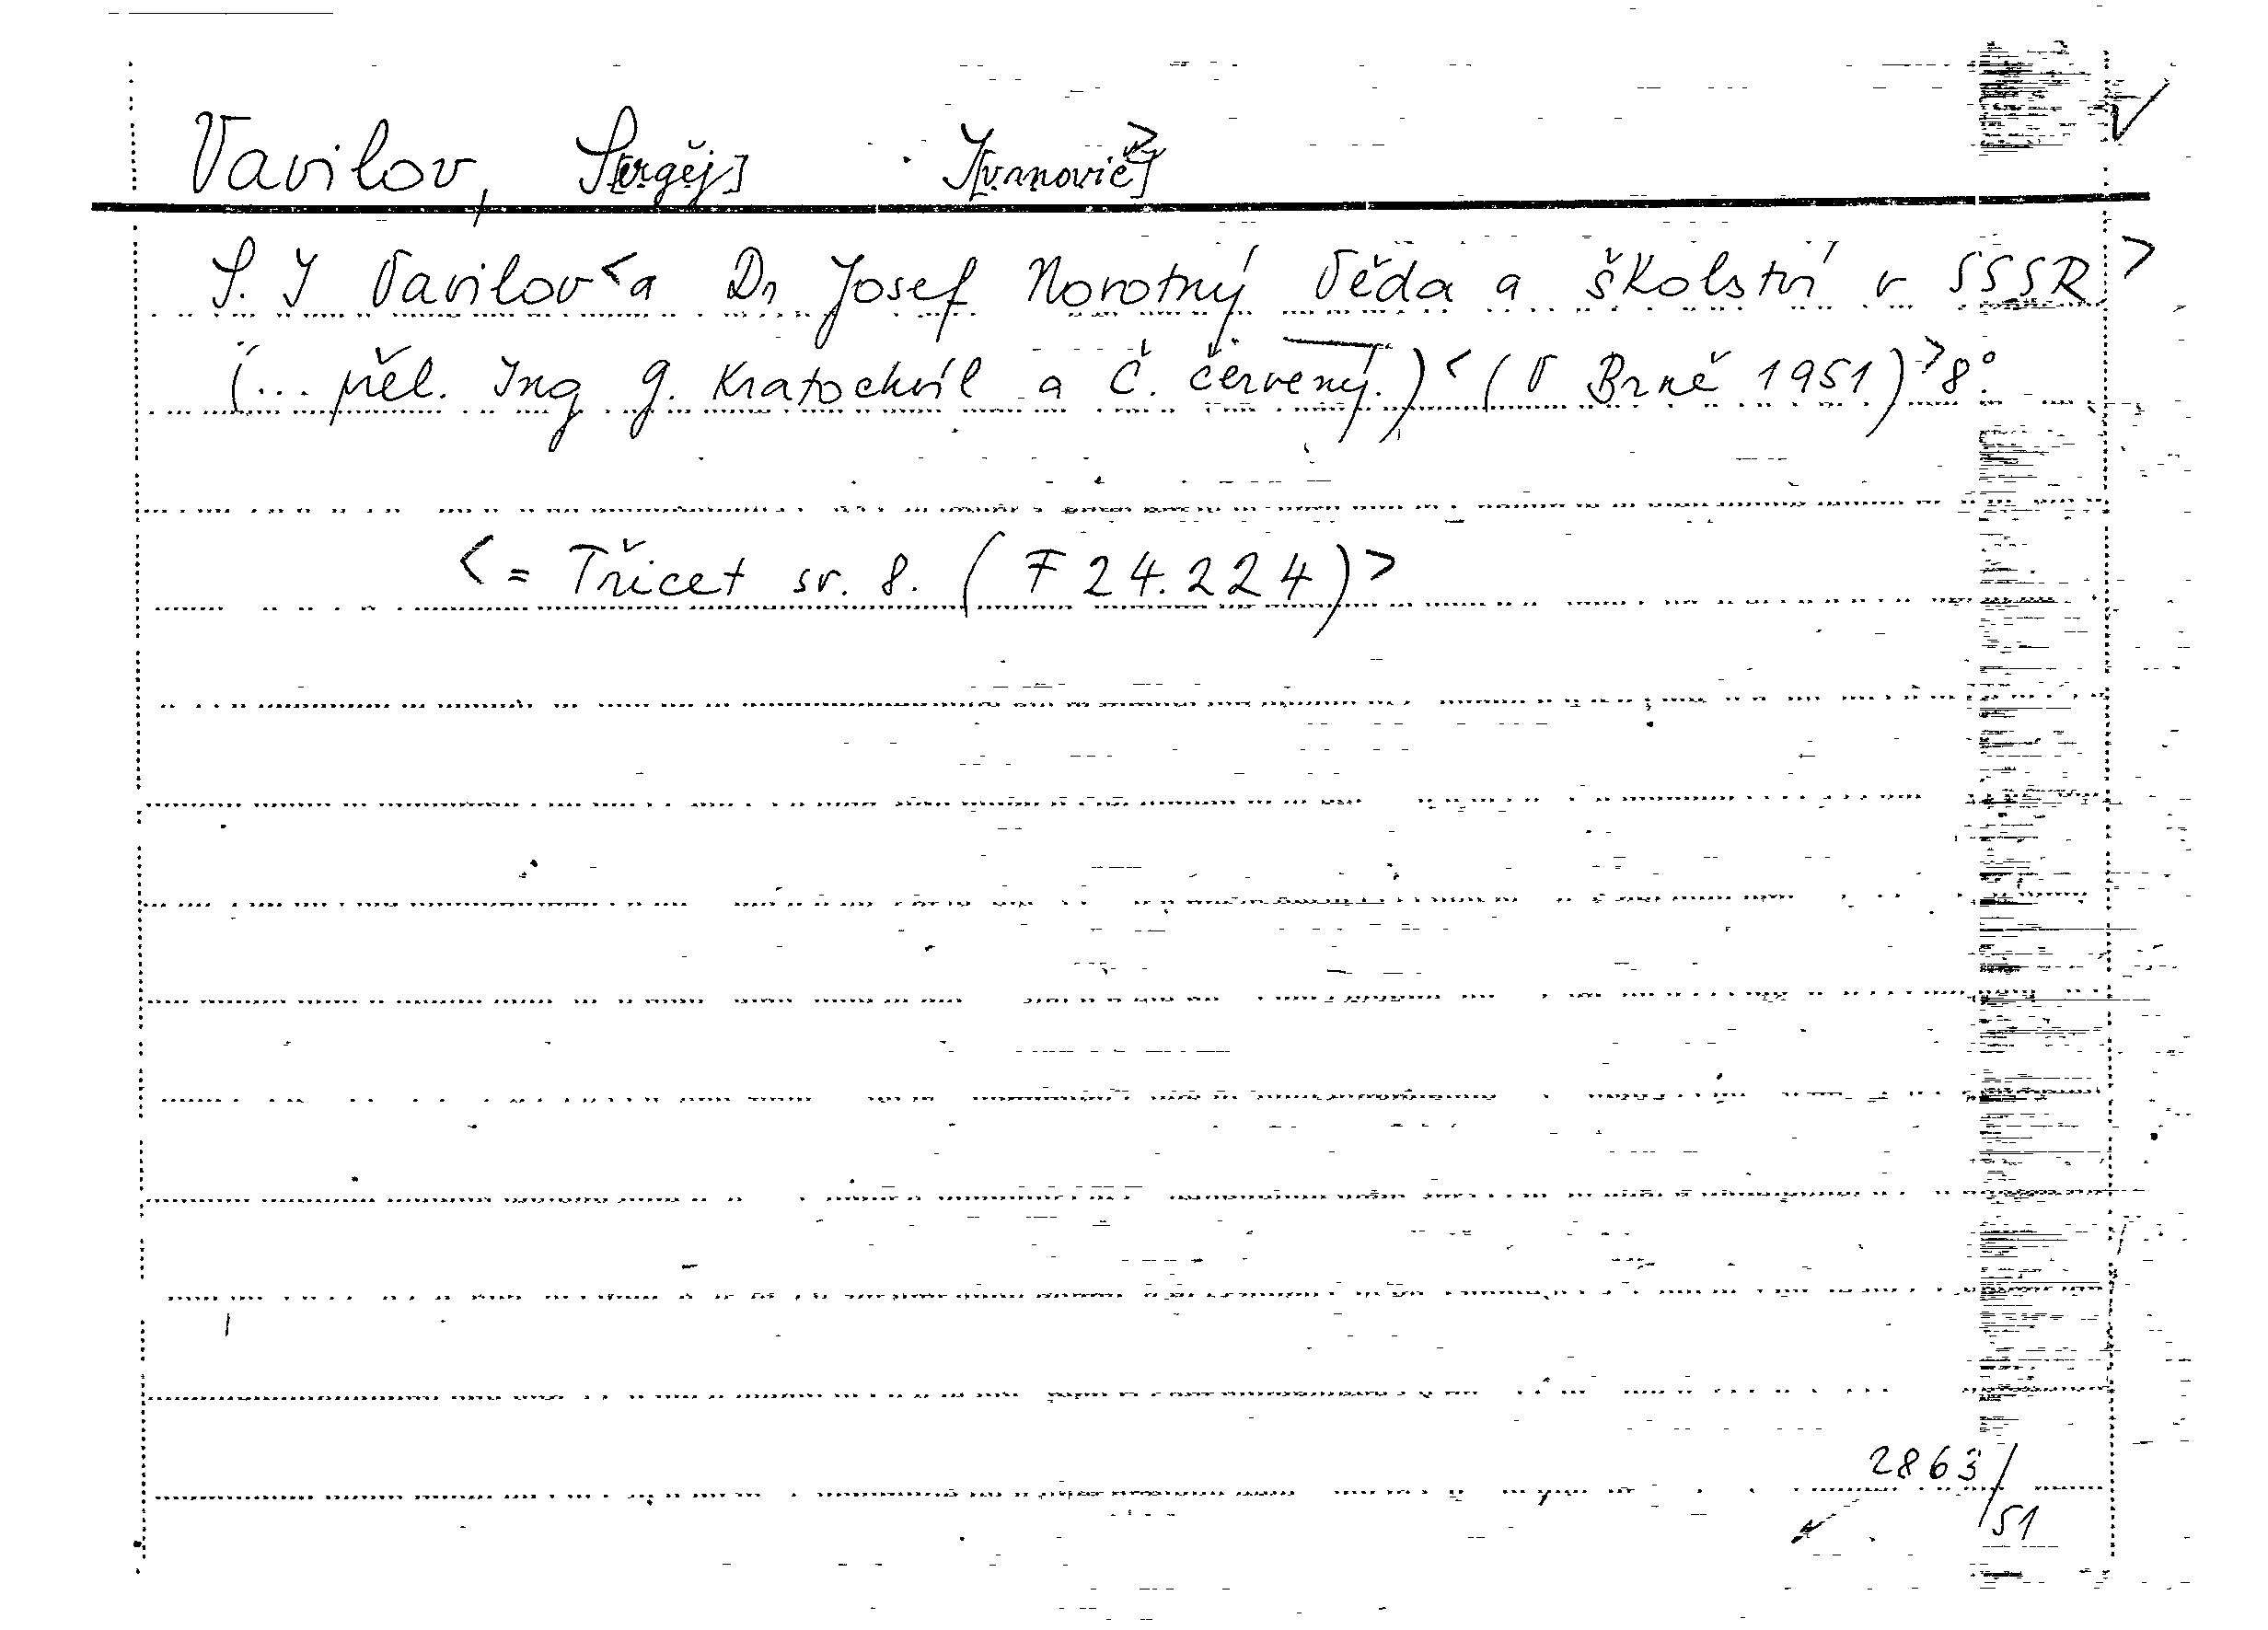 Vavilov, S[ergěj] I[vanovič]>
S. I Vavilov <a Dr Josef Novotný Věda a školství v SSSR>
(... přel. Ing J. Kratochvíl a Č. Červený.) <(V Brně 1951)> 8°.
<= Třicet sv. 8. (F 24.224)>
2863/51